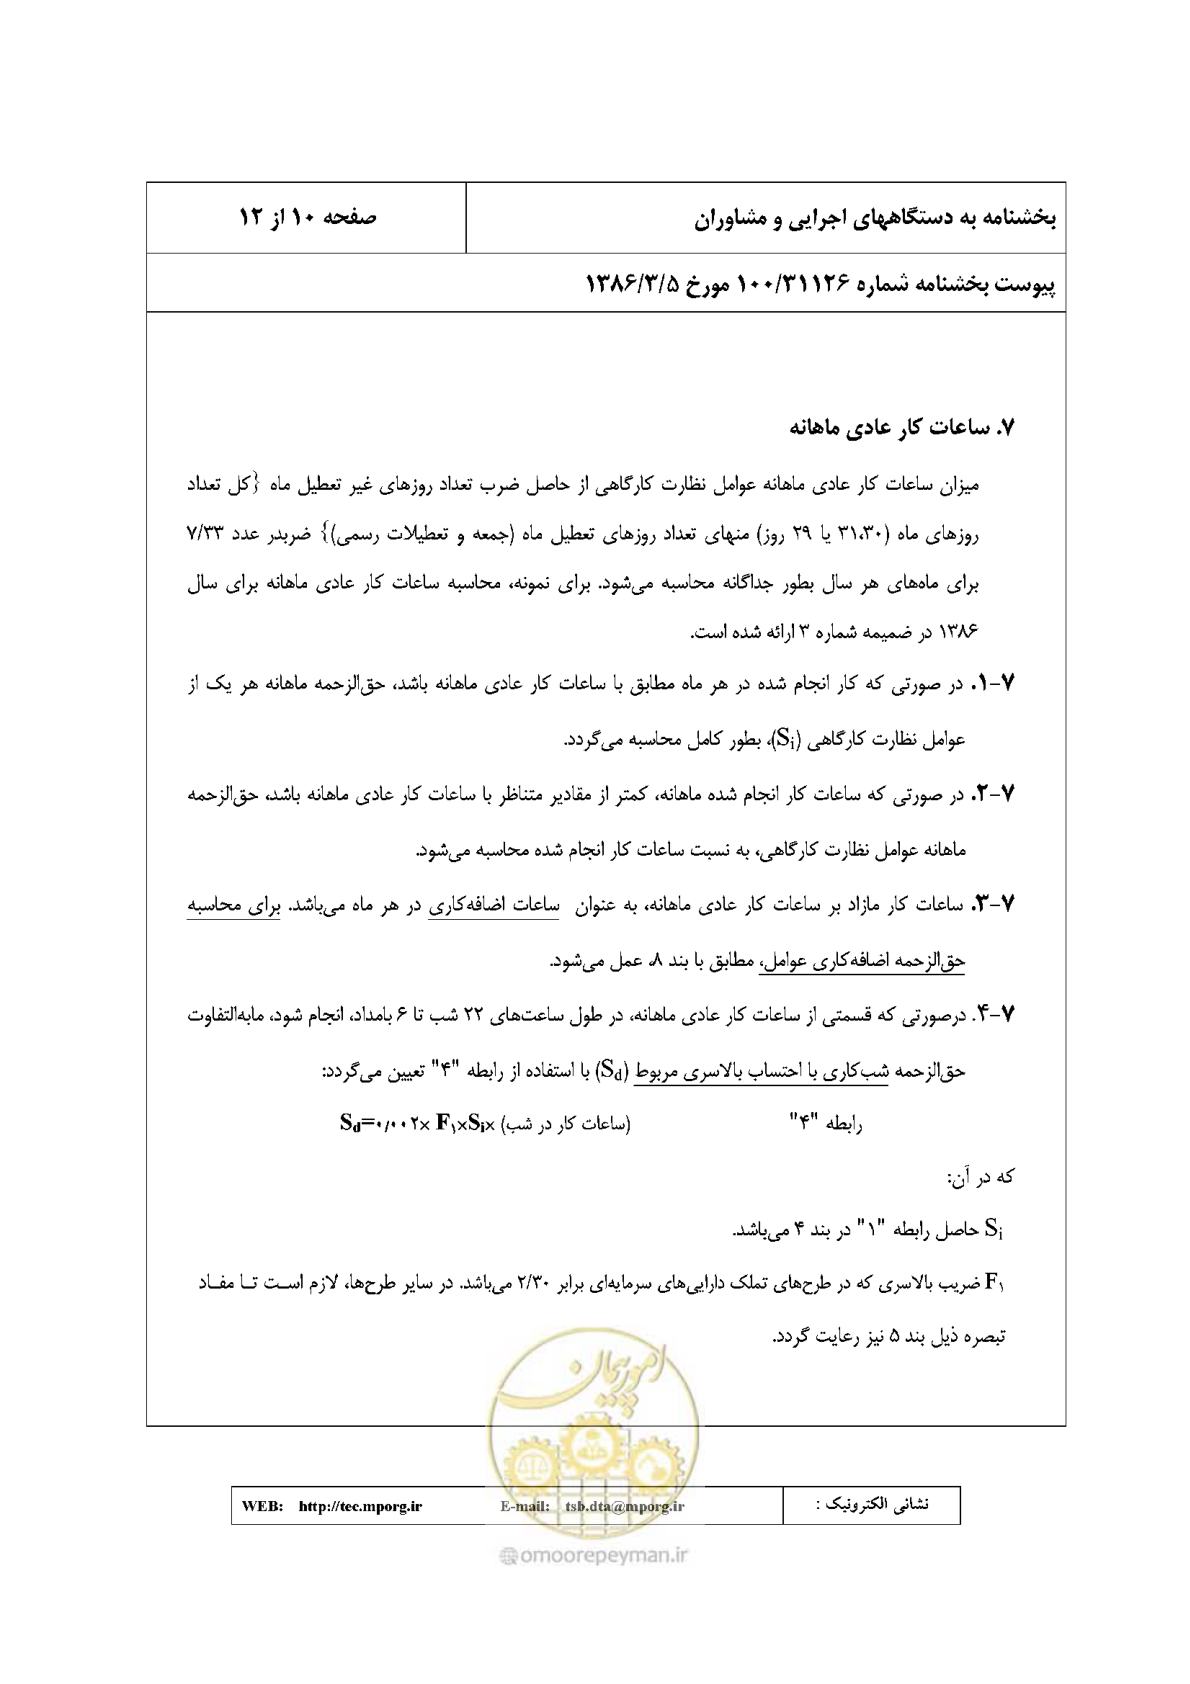 بخشنامه به دستگاههای اجرایی و مشاوران
صفحه ۱۰ از ۱۲
پیوست بخشنامه شماره ۱۰۰/۳۱۱۲۶ مورخ ۱۳۸۶/۳/۵
۷. ساعات کار عادی ماهانه
میزان ساعات کار عادی ماهانه عوامل نظارت کارگاهی از حاصل ضرب تعداد روزهای غیر تعطیل ماه {کل تعداد
روزهای ماه (۳۱،۳۰ یا ۲۹ روز) منهای تعداد روزهای تعطیل ماه (جمعه و تعطیلات رسمی)} ضربدر عدد ۷/۳۳
برای ماه‌های هر سال بطور جداگانه محاسبه می‌شود. برای نمونه، محاسبه ساعات کار عادی ماهانه برای سال
۱۳۸۶ در ضمیمه شماره ۳ ارائه شده است.
۷-۱. در صورتی که کار انجام شده در هر ماه مطابق با ساعات کار عادی ماهانه باشد، حق‌الزحمه ماهانه هر یک از
عوامل نظارت کارگاهی (Si)، بطور کامل محاسبه می‌گردد.
۷-۲. در صورتی که ساعات کار انجام شده ماهانه، کمتر از مقادیر متناظر با ساعات کار عادی ماهانه باشد، حق‌الزحمه
ماهانه عوامل نظارت کارگاهی، به نسبت ساعات کار انجام شده محاسبه می‌شود.
۷-۳. ساعات کار مازاد بر ساعات کار عادی ماهانه، به عنوان ساعات اضافه‌کاری در هر ماه می‌باشد. برای محاسبه
حق‌الزحمه اضافه‌کاری عوامل، مطابق با بند ۸، عمل می‌شود.
۷-۴. درصورتی که قسمتی از ساعات کار عادی ماهانه، در طول ساعت‌های ۲۲ شب تا ۶ بامداد، انجام شود، مابه‌التفاوت
حق‌الزحمه شب‌کاری با احتساب بالاسری مربوط (Sd) با استفاده از رابطه "۴" تعیین می‌گردد:
رابطه "۴" Sd=۰/۰۰۲× F۱×Si× (ساعات کار در شب)
که در آن:
Si حاصل رابطه "۱" در بند ۴ می‌باشد.
F۱ ضریب بالاسری که در طرح‌های تملک دارایی‌های سرمایه‌ای برابر ۲/۳۰ می‌باشد. در سایر طرح‌ها، لازم است تا مفاد
تبصره ذیل بند ۵ نیز رعایت گردد.
امور پیمان
نشانی الکترونیک :
E-mail: tsb.dta@mporg.ir
WEB: http://tec.mporg.ir
@omoorepeyman.ir